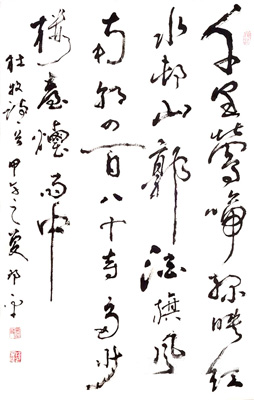 千里鶯啼綠映紅
水邨山郭酒旗風
南朝四百八十寺多少
樓臺煙雨中
杜牧詩 甲午之夏